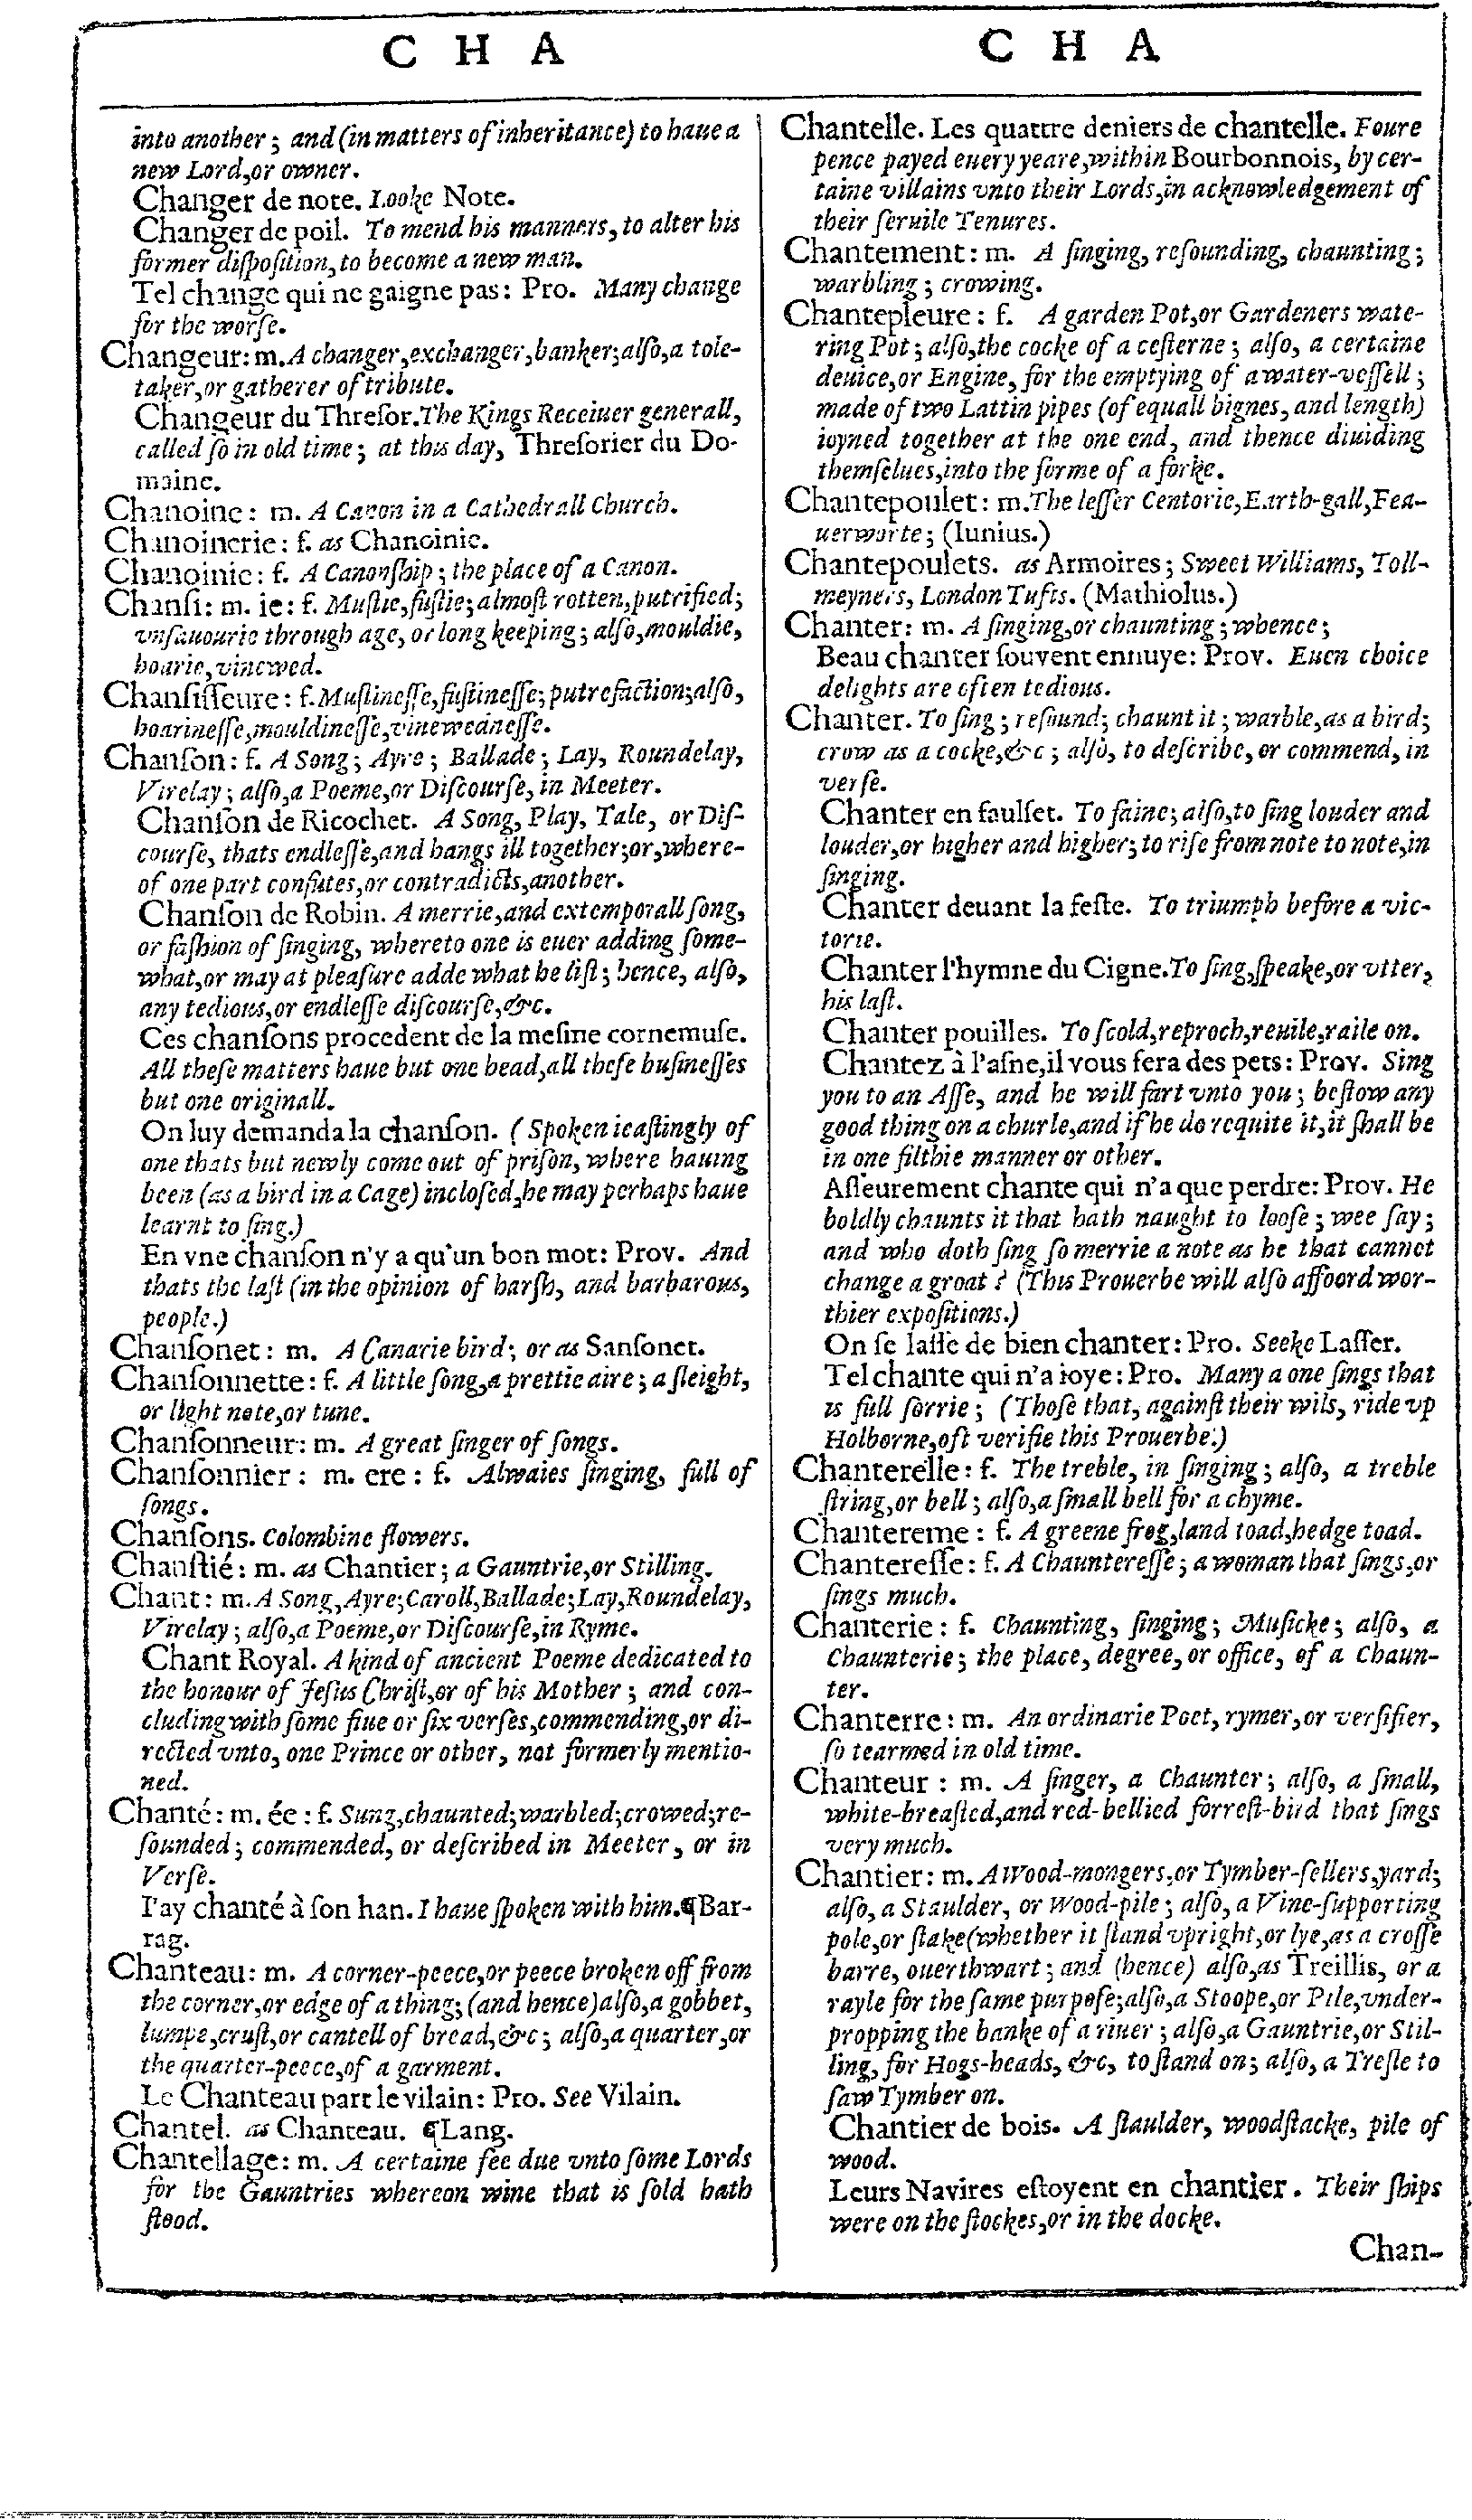 C H A
into another; and (in matters of inheritance) to haue a
new Lord,or owner.
Changer de note. Looke Note.
Changer de poil. To mend his manners, to alter his
former diſpoſition,to become a new man.
Tel change qui ne gaigne pas: Pro. Many change
for the worſe.
Changeur: m. A changer,exchanger,banker;alſo,a tole-
taker,or gatherer of tribute.
Changeur du Threſor. The Kings Receiuer generall,
called ſo in old time; at this day, Threſorier du Do-
maine.
Chanoine: m. A Canon in a Cathedrall Church.
Chanoinerie: f. as Chanoinie.
Chanoinie: f. A Canonſhip; the place of a Canon.
Chanſi: m. ie: f. Muſtie,fuſtie;almoſt rotten,putrified;
vnſauourie through age, or long keeping; alſo,mouldie,
hoarie,vinewed.
Chanſiſſeure: f. Muſtineſſe,fuſtineſſe;putrefaction;alſo,
hoarineſſe,mouldineſſe,vinewedneſſe.
Chanſon: f. A Song; Ayre; Ballade; Lay, Roundelay,
Virelay; alſo,a Poeme,or Diſcourſe, in Meeter.
Chanſon de Ricochet. A Song, Play, Tale, or Diſ-
courſe, thats endleſſe,and hangs ill together;or,where-
of one part confutes,or contradicts,another.
Chanſon de Robin. A merrie,and extemporall ſong,
or faſhion of ſinging, whereto one is euer adding ſome-
what,or may at pleaſure adde what he liſt; hence, alſo,
any tedious,or endleſſe diſcourſe,&c.
Ces chanſons procedent de la meſme cornemuſe.
All theſe matters haue but one head,all theſe buſineſſes
but one originall.
On luy demanda la chanſon. (Spoken ieaſtingly of
one thats but newly come out of priſon, where hauing
been (as a bird in a Cage) incloſed,he may perhaps haue
learnt to ſing.)
En vne chanſon n'y a qu'un bon mot: Prov. And
thats the laſt (in the opinion of harſh, and barbarous,
people.)
Chanſonet: m. A Canarie bird; or as Sanſonet.
Chanſonnette: f. A little ſong,a prettie aire; a ſleight,
or light note,or tune.
Chanſonneur: m. A great ſinger of ſongs.
Chanſonnier: m. ere: f. Alwaies ſinging, full of
ſongs.
Chanſons. Colombine flowers.
Chanſtié: m. as Chantier; a Gauntrie,or Stilling.
Chant: m. A Song,Ayre;Caroll,Ballade;Lay,Roundelay,
Virelay; alſo,a Poeme,or Diſcourſe,in Ryme.
Chant Royal. A kind of ancient Poeme dedicated to
the honour of Jeſus Chriſt,or of his Mother; and con-
cluding with ſome fiue or ſix verſes,commending,or di-
rected vnto, one Prince or other, not formerly mentio-
ned.
Chanté: m. ée: f. Sung,chaunted;warbled;crowed;re-
ſounded; commended, or deſcribed in Meeter, or in
Verſe.
I'ay chanté à ſon han. I haue ſpoken with him. ¶Bar-
rag.
Chanteau: m. A corner-peece,or peece broken off from
the corner,or edge of a thing;(and hence)alſo,a gobbet,
lumpe,cruſt,or cantell of bread,&c; alſo,a quarter,or
the quarter-peece,of a garment.
Le Chanteau part le vilain: Pro. See Vilain.
Chantel. as Chanteau. ¶Lang.
Chantellage: m. A certaine fee due vnto ſome Lords
for the Gauntries whereon wine that is ſold hath
ſtood.
C H A
Chantelle. Les quattre deniers de chantelle. Foure
pence payed euery yeare,within Bourbonnois, by cer-
taine villains vnto their Lords,in acknowledgement of
their ſeruile Tenures.
Chantement: m. A ſinging, reſounding, chaunting;
warbling; crowing.
Chantepleure: f. A garden Pot,or Gardeners wate-
ring Pot; alſo,the cocke of a ceſterne; alſo, a certaine
deuice,or Engine, for the emptying of a water-veſſell;
made of two Lattin pipes (of equall bignes, and length)
ioyned together at the one end, and thence diuiding
themſelues,into the forme of a forke.
Chantepoulet: m. The leſſer Centorie,Earth-gall,Fea-
uerworte; (Iunius.)
Chantepoulets. as Armoires; Sweet Williams, Toll-
meyners, London Tufts. (Mathiolus.)
Chanter: m. A ſinging,or chaunting; whence;
Beau chanter ſouvent ennuye: Prov. Euen choice
delights are often tedious.
Chanter. To ſing; reſound; chaunt it; warble,as a bird;
crow as a cocke,&c; alſo, to deſcribe, or commend, in
verſe.
Chanter en faulſet. To faine; alſo,to ſing louder and
louder,or higher and higher; to riſe from note to note,in
ſinging.
Chanter deuant la feſte. To triumph before a vic-
torie.
Chanter l'hymne du Cigne. To ſing,ſpeake,or vtter,
his laſt.
Chanter pouilles. To ſcold,reproch,reuile,raile on.
Chantez à l'aſne,il vous fera des pets: Prov. Sing
you to an Aſſe, and he will fart vnto you; beſtow any
good thing on a churle,and if he do requite it,it ſhall be
in one filthie manner or other.
Aſſeurement chante qui n'a que perdre: Prov. He
boldly chaunts it that hath naught to looſe; wee ſay;
and who doth ſing ſo merrie a note as he that cannot
change a groat? (This Prouerbe will alſo affoord wor-
thier expoſitions.)
On ſe laſſe de bien chanter: Pro. Seeke Laſſer.
Tel chante qui n'a ioye: Pro. Many a one ſings that
is full ſorrie; (Thoſe that, againſt their wils, ride vp
Holborne,oft verifie this Prouerbe.)
Chanterelle: f. The treble, in ſinging; alſo, a treble
ſtring,or bell; alſo,a ſmall bell for a chyme.
Chantereme: f. A greene frog,land toad,hedge toad.
Chantereſſe: f. A Chauntereſſe; a woman that ſings,or
ſings much.
Chanterie: f. Chaunting, ſinging; Muſicke; alſo, a
Chaunterie; the place, degree, or office, of a Chaun-
ter.
Chanterre: m. An ordinarie Poet, rymer, or verſifier,
ſo tearmed in old time.
Chanteur: m. A ſinger, a Chaunter; alſo, a ſmall,
white-breaſted,and red-bellied forreſt-bird that ſings
very much.
Chantier: m. A Wood-mongers,or Tymber-ſellers,yard;
alſo, a Staulder, or Wood-pile; alſo, a Vine-ſupporting
pole,or ſtake(whether it ſtand vpright,or lye,as a croſſe
barre, ouerthwart; and (hence) alſo,as Treillis, or a
rayle for the ſame purpoſe;alſo,a Stoope,or Pile,vnder-
propping the banke of a riuer; alſo,a Gauntrie,or Stil-
ling, for Hogs-heads, &c, to ſtand on; alſo, a Treſle to
ſaw Tymber on.
Chantier de bois. A ſtaulder, woodſtacke, pile of
wood.
Leurs Navires eſtoyent en chantier. Their ſhips
were on the ſtockes,or in the docke.
Chan-